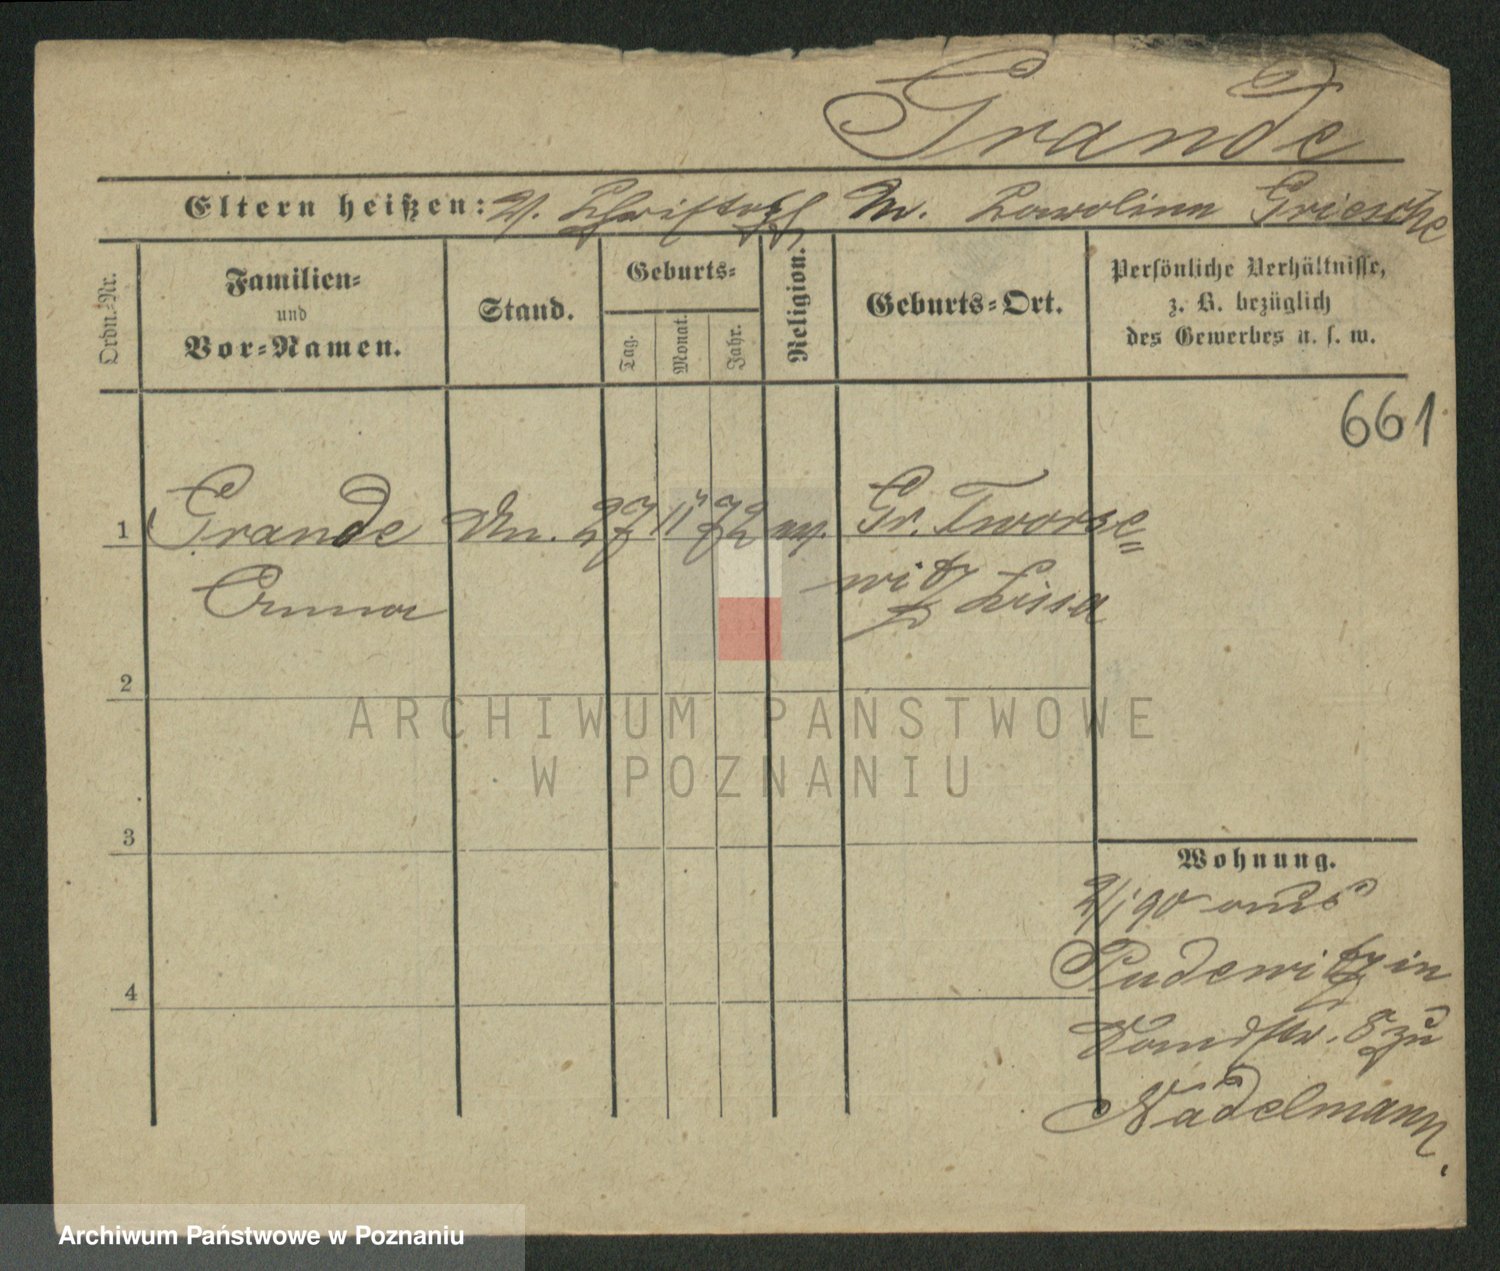 Grande
Eltern heißen: V. Christoph M. Karoline Griesche
Ordn.-Nr.
Familien-
und
Vor-Namen.
Stand.
Geburts-
Tag.
Monat.
Jahr.
Religion.
Geburts-Ort.
Persönliche Verhältnisse,
z. B. bezüglich
des Gewerbes u. s. w.
661
1 Grande 27 11 72 Gr. Tworse-
Anna witz Lissa
2
ARCHIWUM PAŃSTWOWE
W POZNANIU
3
Wohnung.
2/1 90 aus
Pudewitz in
4
8 zu
Nadelmann.
Archiwum Państwowe w Poznaniu